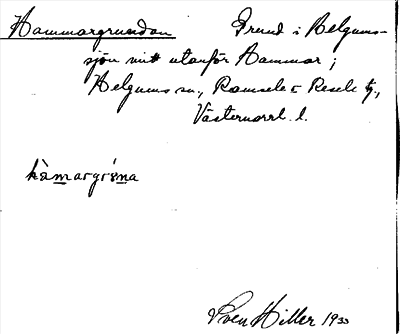 Hammargrundan Grund i Helgums-
sjön mitt utanför Hammar;
Helgums sn, Ramsele o Resele tg,
Västernorrl. l.
hàmargrɞ́na
Sven Hiller 1933